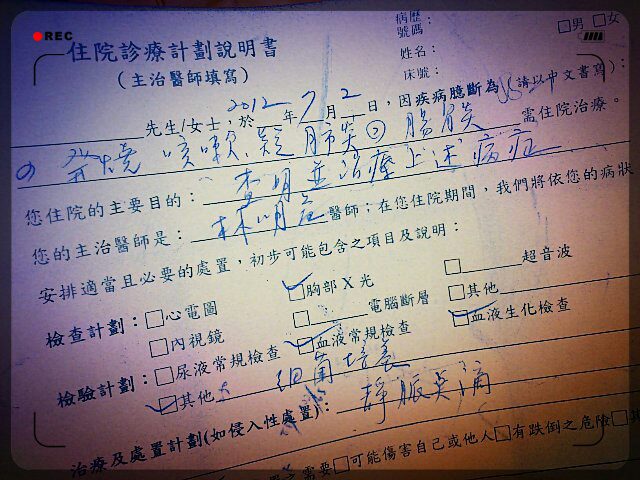 REC
病歷號碼：
□男 □女
住院診療計劃說明書
姓名：
(主治醫師填寫)
床號：
先生/女士，於 2012 年 7 月 2 日，因疾病臆斷為(請以中文書寫)：
發燒 咳嗽、疑 肺炎 ② 腸胃炎 需住院治療。
您住院的主要目的：查明並治療上述病症
您的主治醫師是：林 醫師；在您住院期間，我們將依您的病狀
安排適當且必要的處置，初步可能包含之項目及說明：
檢查計劃：□心電圖 ☑胸部X光 □ 超音波
□內視鏡 □ 電腦斷層 □其他
檢驗計劃：□尿液常規檢查 ☑血液常規檢查 ☑血液生化檢查
☑其他 細菌培養
治療及處置計劃(如侵入性處置)：靜脈點滴
需要□可能傷害自己或他人□有跌倒之危險